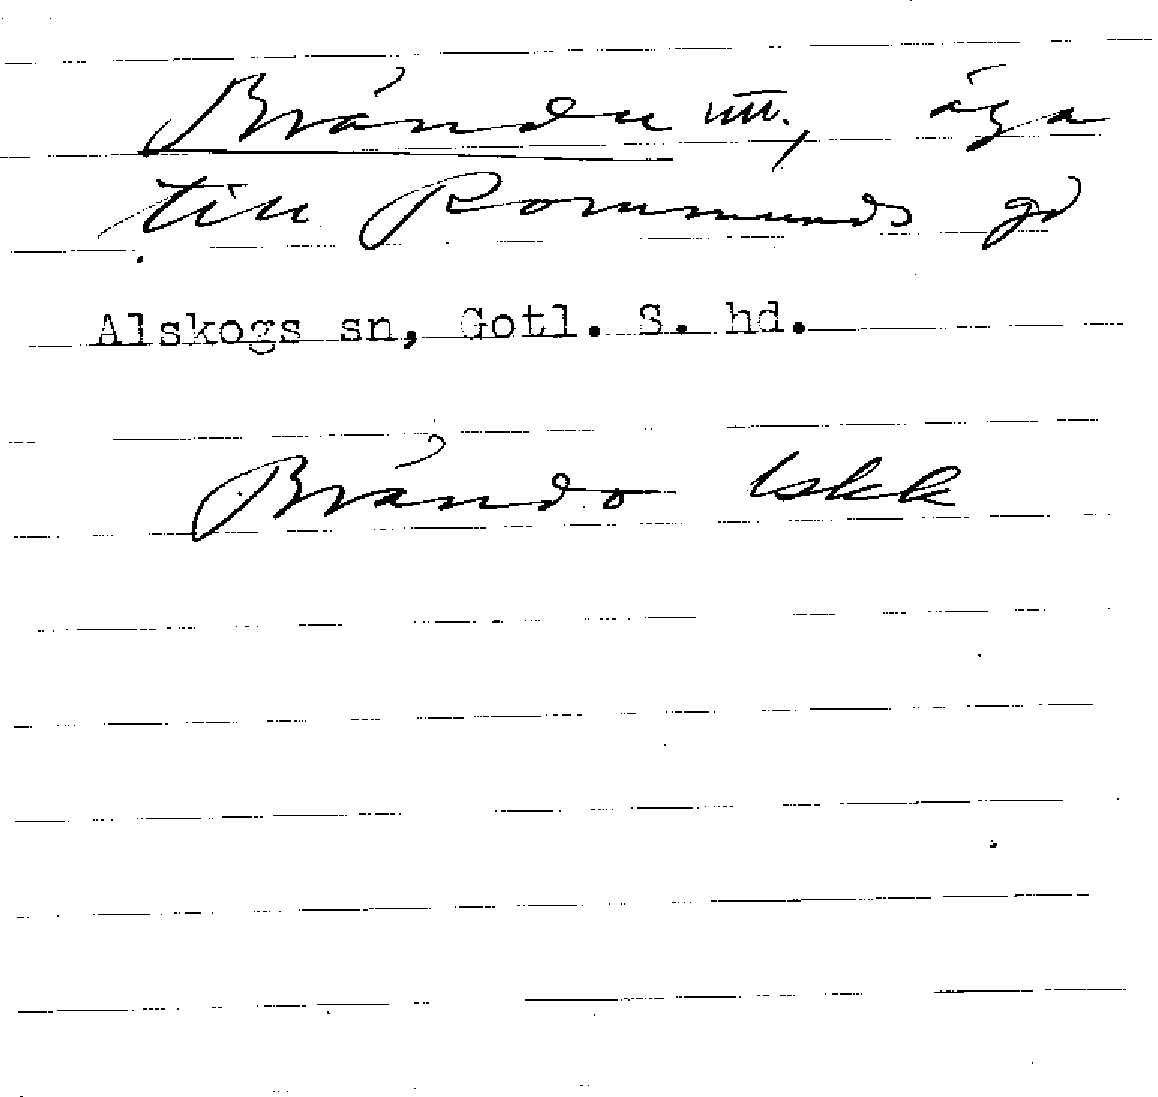 Brändu utt., äga
till Rommunds gd
Alskogs sn, Gotl. S. hd.
Brändo lskk